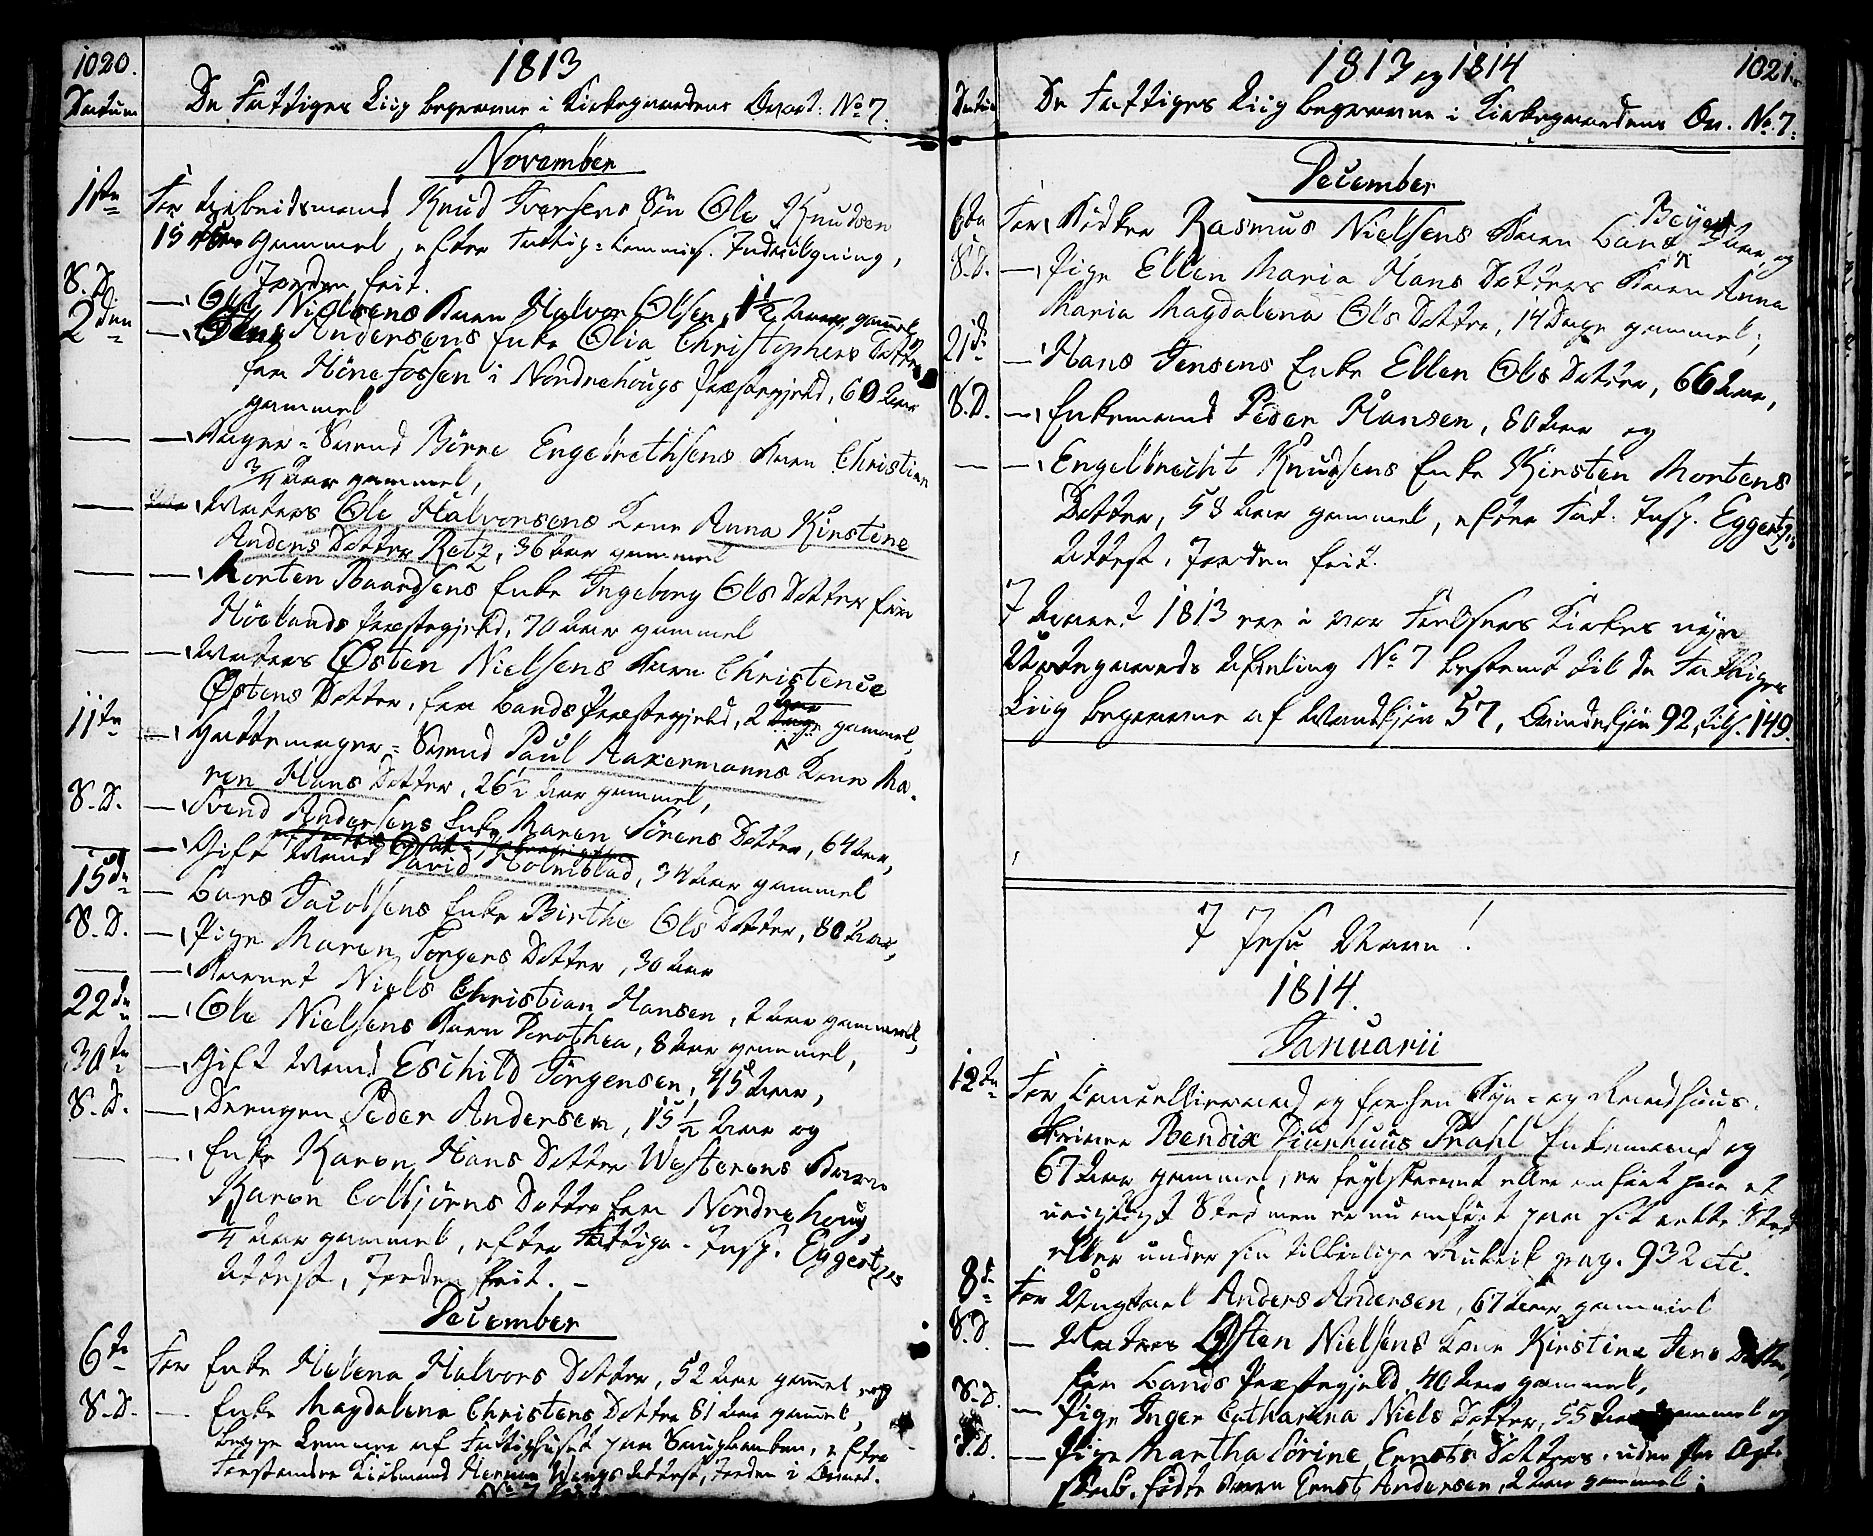 1020.
1813
Datum
De Fattiges Liig begravne i Kirkegaardens Qvart: No 7.
November
1ste
For Arbeidsmand Knud Iversens Sön Ole Knudsen
15 Aar Gammel, efter Fattig-Commiss. Indvilgning,
Jorden frit.
S.D.
— Ole Nielsens Barn Halvor Olsen, 1 1/2 Aar gammel
2den
— Andersens Enke Olia Christophers Datter
fra Hönefossen i Nordrehougs Præstegjeld, 60 Aar
gammel
— Bager-Svend Börre Engebrethsens Barn Christian
3/4 Aar gammel,
— Matros Ole Halvorsens Kone Anna Kirstine
Anders Datter Retz, 36 Aar gammel
— Morten Baardsens Enke Ingeborg Ols Datter fra
Hölands Præstegjeld, 70 Aar gammel
— Matros Østen Nielsens Barn Christence
Østens Datter, fra Lands Præstegjeld, 2 Aar gammel,
11te
— Hattemager-Svend Paul Aakermanns Kone Ma-
ren Hans Datter, 26 1/2 Aar gammel,
S.D.
— Svend Andersens Enke Maren Sörens Datter, 64 Aar,
— Gift Mand David Holmblad, 34 Aar gammel
15de
— Lars Jacobsens Enke Birthe Ols Datter, 80 Aar,
S.D.
— Pige Maren Torgers Datter, 30 Aar
— Barnet Niels Christian Hansen, 2 Aar gammel,
22de
— Ole Nielsens Barn Dorothea, 8 Aar gammel,
30te
— Gift Mand Eschild Törgensen, 45 Aar,
S.D.
— Drengen Peder Andersen, 15 1/2 Aar og
— Enke Karen Hans Datter Westerens Barn
Karen Colbjörns Datter fra Nordrehoug
1/4 Aar gammel, efter Fattige-Insp. Eggertzes
Attest, Jorden frit. —
December
6te
For Enke Helena Halvors Datter, 52 Aar gammel og
S.D.
— Enke Magdalena Christens Datter 81 Aar gammel,
begge Lemmer af Fattighuset paa Saugbanken, efter
Forstander Kiöbmand Herman Wengs Attest, Jorden i Qvart.
No 7 frit
1813 og 1814
1021.
Datum
De Fattiges Liig begravne i Kirkegaardens Qv. No. 7.
December
6te
For Bödker Rasmus Nielsens Barn Lars Beyer Aar, og
S.D.
— Pige Ellen Maria Hans Datters Barn Anna
Maria Magdalena Ols Datter, 14 Dage gammel;
21de
— Hans Jensens Enke Ellen Ols Datter, 66 Aar,
S.D.
— Enkemand Peder Hansen, 80 Aar og
— Engelbrecht Knudsens Enke Kirsten Mortens
Datter, 58 Aar gammel, efter Fat. Insp. Eggertzes
Attest, Jorden frit.
I Aaret 1813 ere i vor Frelsers Kirkes nye
Urtegaards Afdeling No 7 bestemt til de Fattiges
Liig begravne af Mandkjön 57, Qvindekjön 92, tils. 149.
I Jesu Navn!
1814.
Januarii
12te
For Cancelliraad og forhen Bye- og Raadhuus-
skriver Bendix Diurhuus Prahl Enkemand og
67 Aar gammel, er feylskrevet eller anfört paa et
urigtigt Sted men er nu anfört paa sit rette Sted
eller under sin tilbörlige Rubrik pag. 932 etc.
8de
For Vugtael Anders Andersen, 67 Aar gammel
S.D.
— Matros Østen Nielsens Kone Kirstine Jens Datter,
fra Lands Præstegjeld 40 Aar gammel,
S.D.
— Pige Inger Catharina Niels Datter, 55 Aar gammel og
S.D.
— Pige Martha Sörine Ernsts Datters, uden for Ægte-
skab, födte Barn Ernst Andersen, 2 Aar gammel;